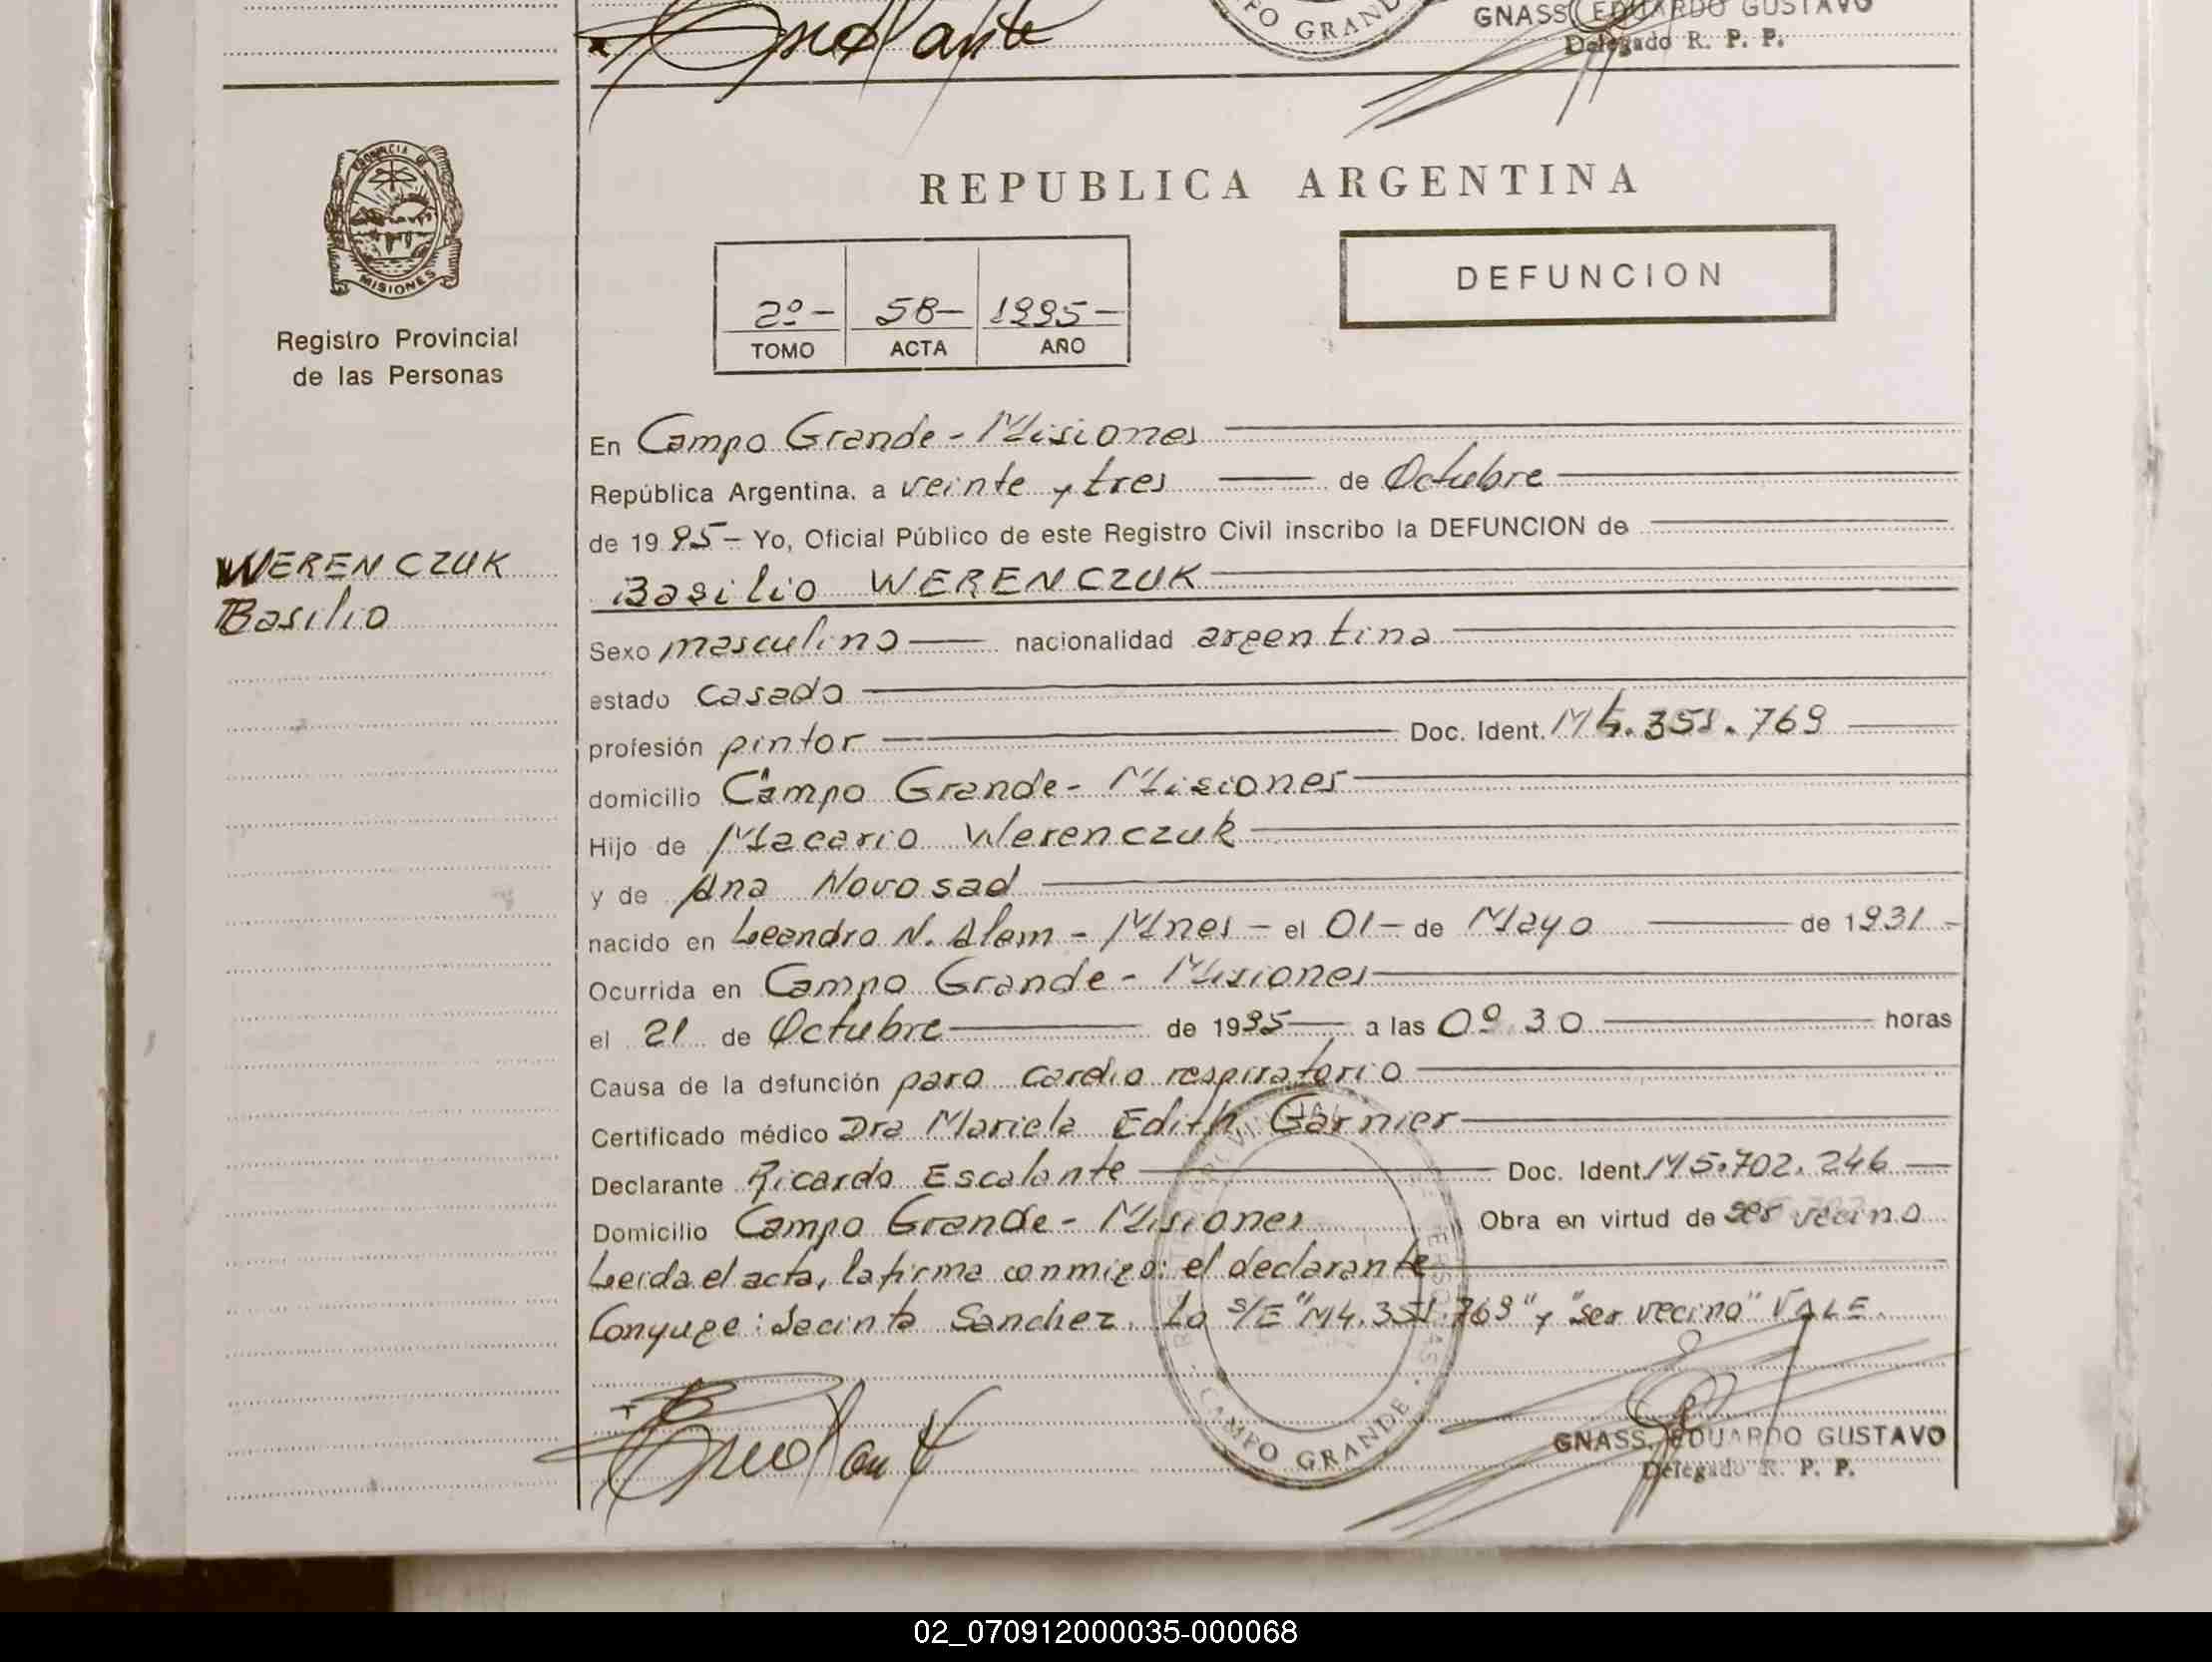 GNASS, EDUARDO GUSTAVO
Delegado R. P. P.
PO GRAND
PROVINCIA DE
MISIONES
Registro Provincial
de las Personas
REPUBLICA ARGENTINA
2º- 58- 1995-
TOMO ACTA AÑO
DEFUNCION
En Campo Grande - Misiones
República Argentina, a veinte y tres de Octubre
de 1995- Yo, Oficial Público de este Registro Civil inscribo la DEFUNCION de
WERENCZUK
Basilio
Basilio WERENCZUK
Sexo masculino nacionalidad argentina
estado casado
profesión pintor Doc. Ident. M4.351.769
domicilio Campo Grande - Misiones
Hijo de Macario Werenczuk
y de Ana Novosad
nacido en Leandro N. Alem - Mnes - el 01- de Mayo de 1931.-
Ocurrida en Campo Grande - Misiones
el 21 de Octubre de 1995 a las 09.30 horas
Causa de la defunción paro cardio respiratorio
Certificado médico Dra Mariela Edith Garnier
Declarante Ricardo Escalante Doc. Ident. M5.702.246
Domicilio Campo Grande - Misiones Obra en virtud de ser vecino
Leida el acta, la firma conmigo: el declarante
Conyuge: Jacinta Sanchez. Lo S/E "M4.351.769" y "ser vecino" VALE.
CAMPO GRANDE
GNASS, EDUARDO GUSTAVO
Delegado R. P. P.
02_070912000035-000068